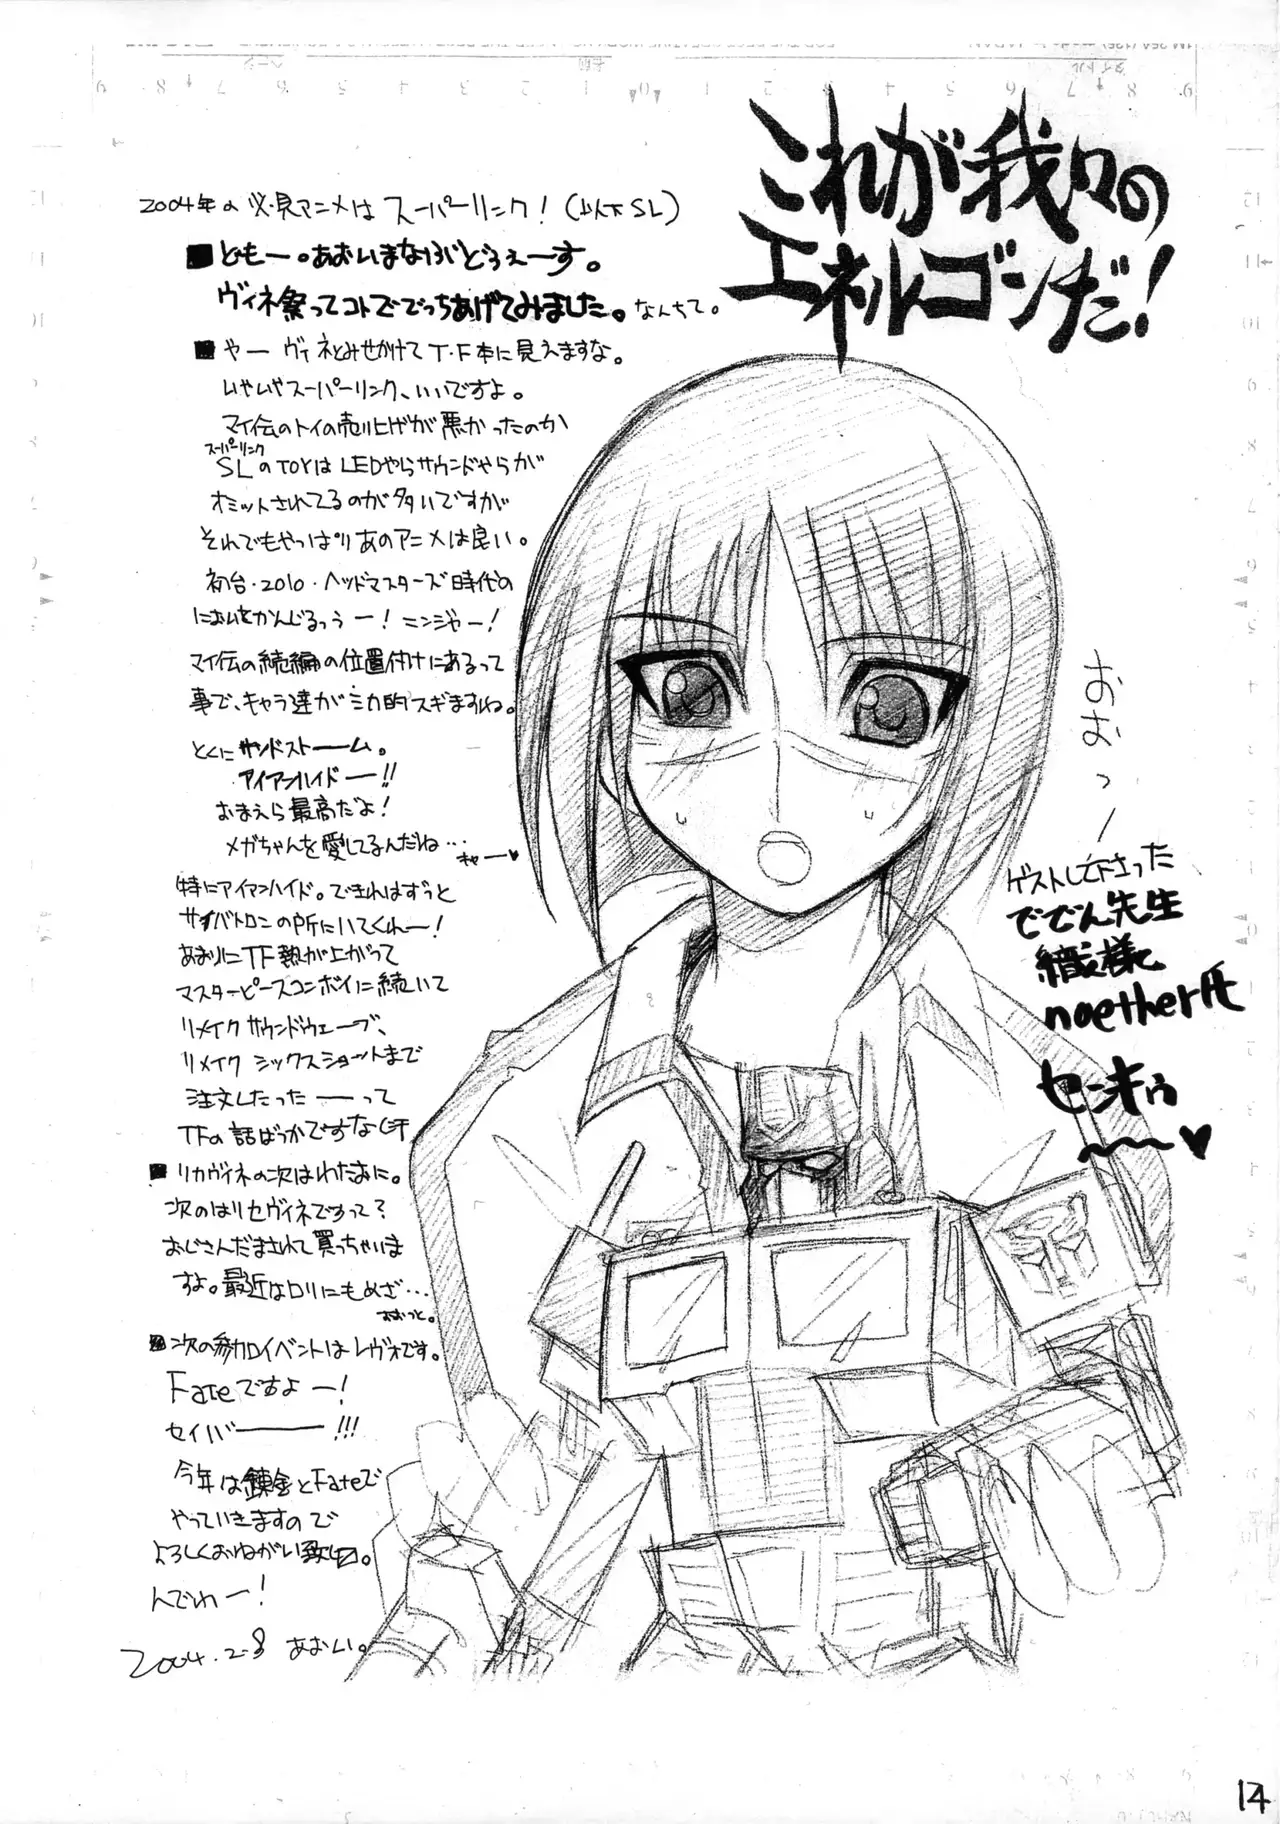 これが我々の
エネルゴンだ!
2004年の必見アニメはスーパーリンク!(以下SL)
■ともー。あおいまなぶどぅぇーす。
ヴィネ祭ってコトででっちあげてみました。なんちて。
■やー ヴィネとみせかけてT・F本に見えますな。
いやいやスーパーリンク、いいですよ。
マイ伝のトイの売り上げが悪かったのか
スーパーリンク
SLのTOYはLEDやらサウンドやらが
オミットされてるのが多いですが
それでもやっぱりあのアニメは良い。
初台・2010・ヘッドマスターズ時代の
においをかんじるっうー!ニンジャー!
マイ伝の続編の位置付けにあるって
事で、キャラ達がミカ的スギますね。
とくにサンドストーム。
アイアンハイドー!!
おまえら最高だよ!
メガちゃんを愛してるんだね…
キャー♥
特にアイアンハイド。できればずぅっと
サイバトロンの所にいてくれー!
あおりにTF熱が上がって
マスターピースコンボイに続いて
リメイクサウンドウェーブ、
リメイク シックスショットまで
注文したったーって
TFの話ばっかですな(汗
■リカヴィネの次はわたおに。
次のはリセヴィネですって?
おじさんだまされて買っちゃいま
すよ。最近なロリにもめざ…
おおっと。
■次の参加イベントはレヴォです。
Fateですよー!
セイバーーー!!!
今年は錬金とFateで
やっていきますので
よろしくおねがい致〼。
んでわー!
2004.2.8 あおい。
おおっー
ゲストして下さった
ででん先生
織様と
noether氏
センキゥ
〜〜♥
14